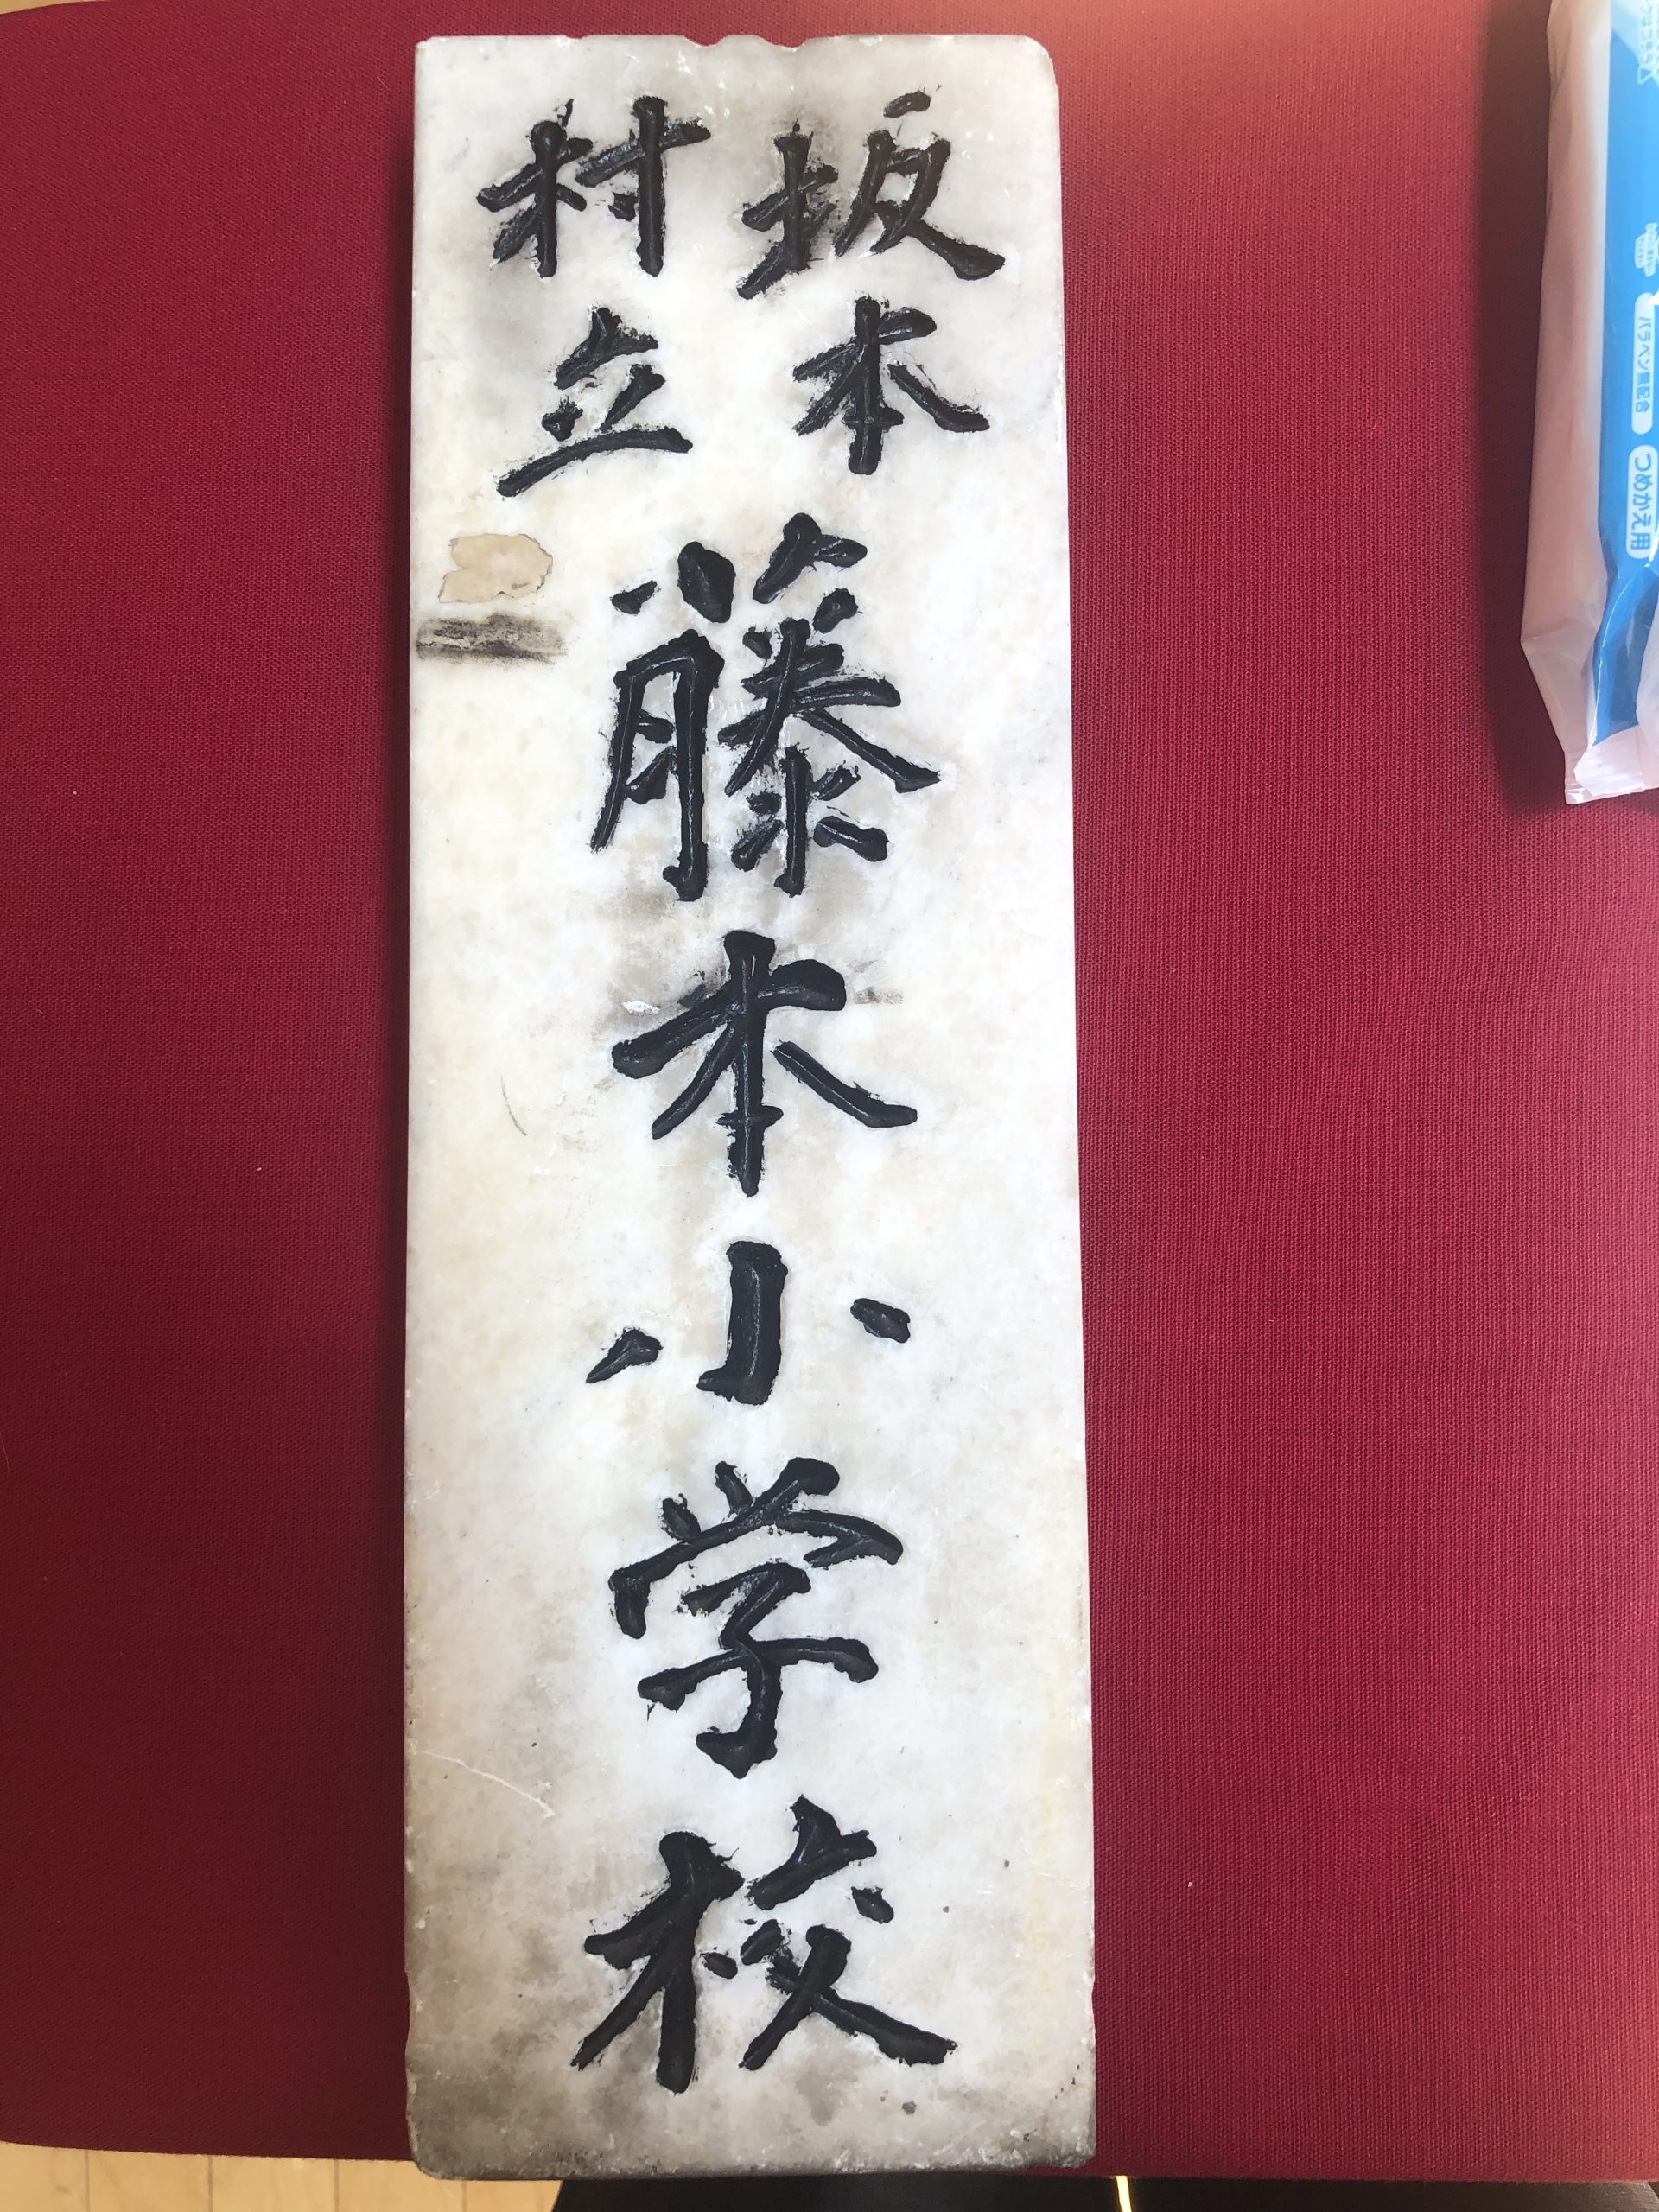 坂本
村立
藤本小学校
パラベン無配合
つめかえ用